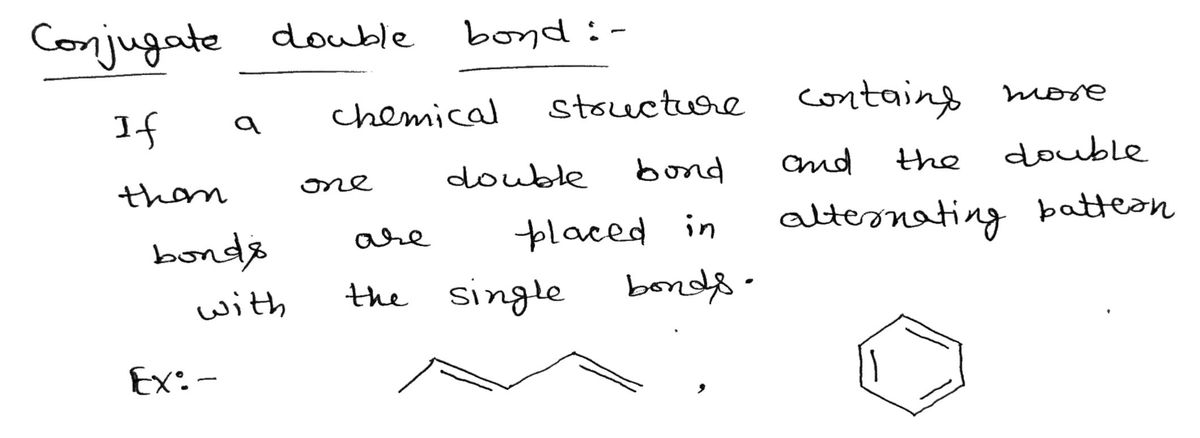 Conjugate double bond :-
If a chemical structure contains more
than one double bond and the double
bonds are placed in alternating battern
with the single bonds.
Ex:- ,